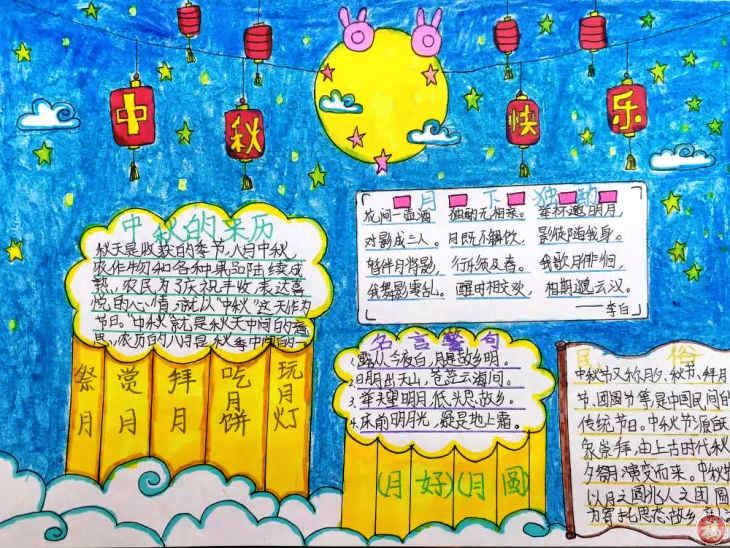 中秋快乐
中秋的来历
秋天是收获的季节,八月中秋,
农作物和各种果品陆续成
熟,农民为了庆祝丰收,表达喜
悦的心情,就以“中秋”这天作为
节日。“中秋”就是秋天中间的意
思,农历的八月是秋季中间的一
祭月
赏月
拜月
吃月饼
玩月灯
月下独酌
花间一壶酒 独酌无相亲。举杯邀明月,
对影成三人。月既不解饮,影徒随我身。
暂伴月将影,行乐须及春。我歌月徘徊,
我舞影零乱。醒时相交欢,相期邈云汉。
——李白
名言警句
1.露从今夜白,月是故乡明。
2.明月出天山,苍茫云海间。
3.举头望明月,低头思故乡。
4.床前明月光,疑是地上霜。
(月 好)(月 圆)
民 俗
中秋节又称月夕、秋节、拜月
节、团圆节等,是中国民间的
传统节日。中秋节源
象崇拜,由上古时代秋
夕祭月演变而来。中秋节
以月之圆兆人之团圆
为寄托思念故乡